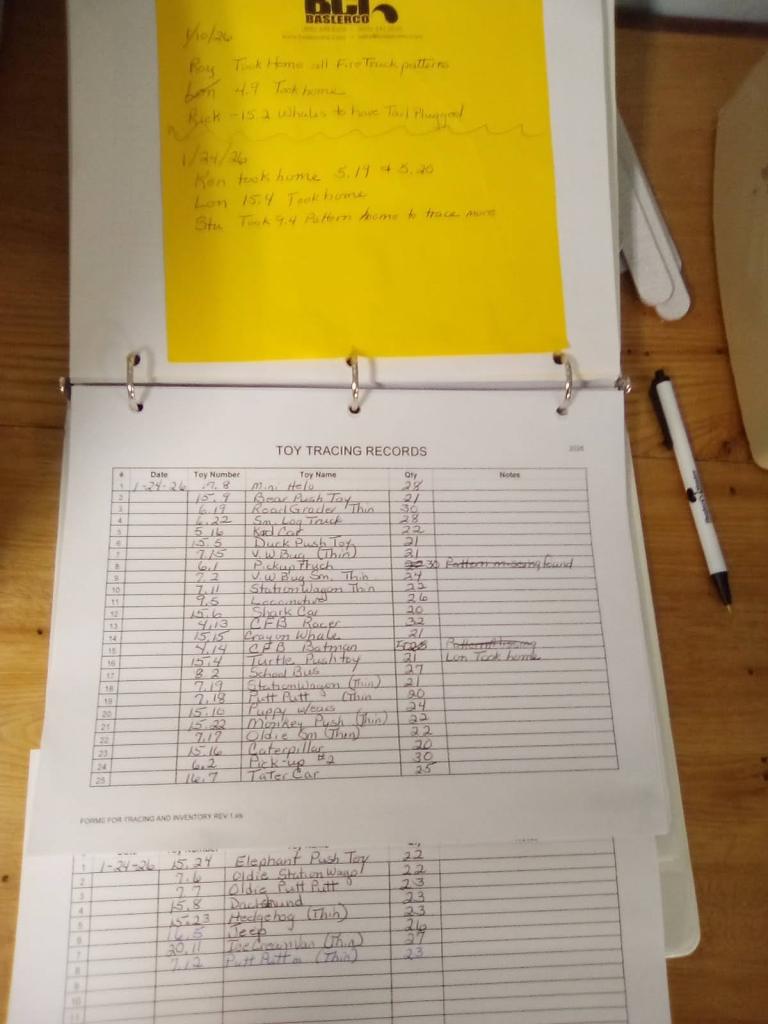 BASLERCO
1/10/26
Roy Took Home all Fire Truck patterns
Lon 4.9 Took home
Rick - 15.2 Whales to have Tail Plugged
1/24/26
Ken took home 5.19 & 5.20
Lon 15.4 Took home
Stu Took 9.4 Pattern home to trace more
TOY TRACING RECORDS 2026
# Date Toy Number Toy Name Qty Notes
1 1-24-26 17.8 Mini Helo 28
2 15.9 Bear Push Toy 21
3 6.19 Road Grader Thin 30
4 6.22 Sm. Log Truck 28
5 5.16 Car 22
6 15.5 Duck Push Toy 21
7 7.15 V.W Bug (Thin) 21
8 6.1 Pickup 30 Pattern missing found
9 7.2 V.W Bug Sm. Thin 24
10 7.11 Station Wagon Thin 22
11 9.5 Locomotive 26
12 15.6 Shark Car 20
13 4.13 CFB Racer 32
14 15.15 Crayon Whale 21
15 4.14 CFB Batman Pattern Missing
16 15.4 Turtle Push toy 21 Lon Took home
17 8.2 School Bus 27
18 7.19 Station Wagon (Thin) 21
19 7.18 Putt Putt (Thin 20
20 15.10 Puppy 24
21 15.22 Monkey Push (Thin) 22
22 7.17 Oldie Sm (Thin) 22
23 15.16 Caterpillar 20
24 6.2 Pick-up #2 30
25 16.7 Tater Car 25
FORMS FOR TRACING AND INVENTORY REV 1.xls
1 1-24-26 15.24 Elephant Push Toy 22
2 7.6 Oldie Station Wago 22
3 7.7 Oldie Putt Putt 23
4 15.8 Dachshund 23
5 15.23 Hedgehog (Thin) 23
6 16.5 Jeep 26
7 20.11 Ice Cream Van (Thin) 27
8 7.12 Putt Putt (Thin) 23
9
10
11